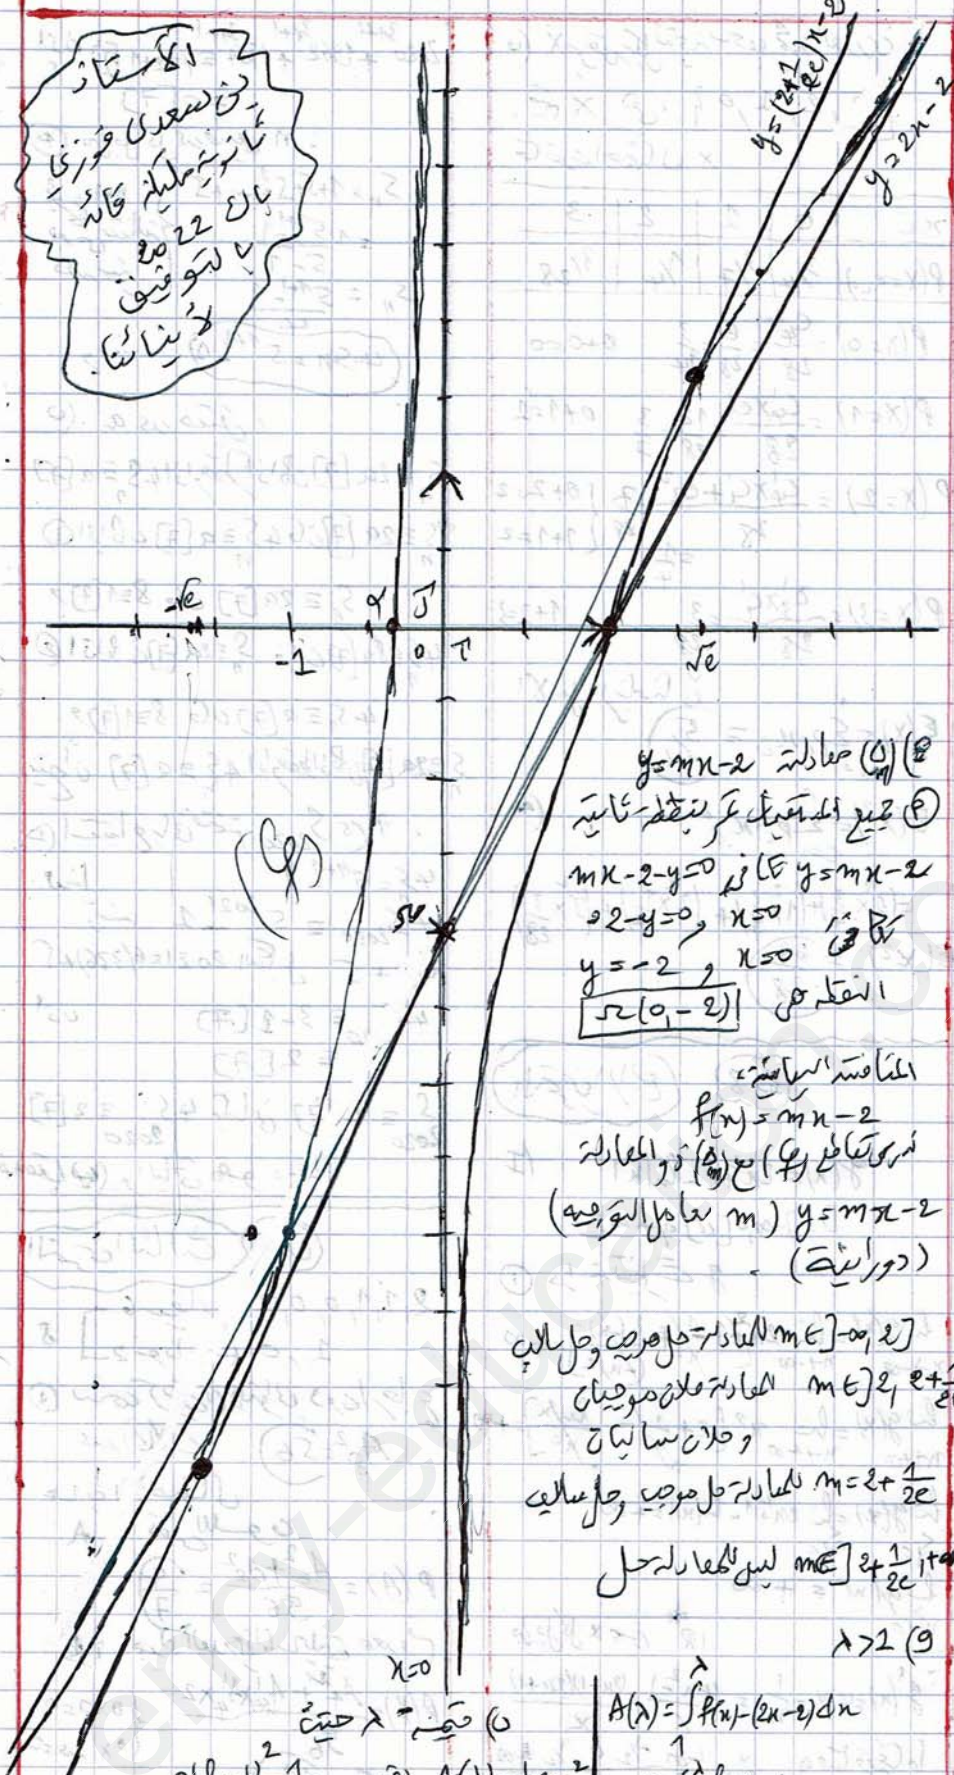 الأستاذ
بن سعدي فوزي
ثانوية مليكة قائد
باك 2022
بالتوفيق
لأبنائنا.
y=(2+1/2e)x-2
y=2x-2
-√e
α
-1
0
√e
(φ)
8) (Δm) معادلة y=mx-2
جميع المستقيمات تمر بنقطة ثابتة
y=mx-2 تكافئ mx-2-y=0
تكافئ x=0 و -2-y=0
x=0 و y=-2
النقطة هي Ω(0,-2)
المناقشة البيانية:
f(x)=mx-2
ندرس تقاطع (φ) مع (Δm) ذو المعادلة
y=mx-2 (m معامل التوجيه)
(دورانية).
m∈]-∞,2] للمعادلة حل موجب وحل سالب
m∈]2,2+1/2e المعادلة حلان موجبان
وحلان سالبان
m=2+1/2e للمعادلة حل موجب وحل سالب
m∈]2+1/2e,+∞ ليس للمعادلة حل
9) λ>1
x=0
A(λ)=∫₁^λ f(x)-(2x-2)dx
ب) قيمة λ حيث